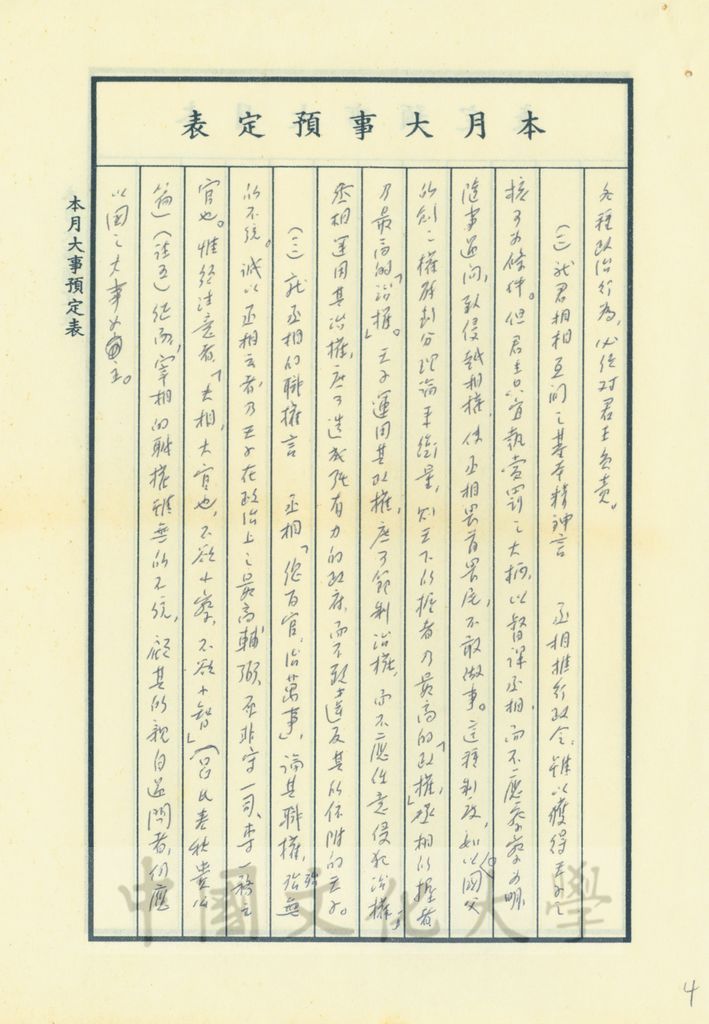 本月大事預定表
各種政治行為，必須對君主負責。
(二)就君相相互間之基本精神言　丞相推行政令，雖以獲得天子之
核可為條件。但君主只宜執賞罰之大柄，以督課丞相，而不應察察為明
隨事過問，致侵越相權，使丞相畏首畏尾，不敢做事。這種制度，如以國父
所創二權劃分理論來衡量，則天下所握者乃最高的「政權」，丞相所握者
乃最高的「治權」。天子運用其政權，庶可節制治權，而不應任意侵犯治權，
丞相運用其治權，庶可造成強有力的政府，而不致違反其所依附的天子。
(三)就丞相的職權言　丞相「總百官，治萬事」，論其職權，殆無
所不統。誠以丞相云者，乃天子在政治上之最高輔弼，並非守一司，專一務之
官也。惟經注意者，「大相，大官也，不欲小察，不欲小智」(呂氏春秋貴公
篇)(註五)從而，宰相的職權雖無所不統，顧其所親自過問者，仍應
以國之大事為主。
本月大事預定表
中國文化大學
4